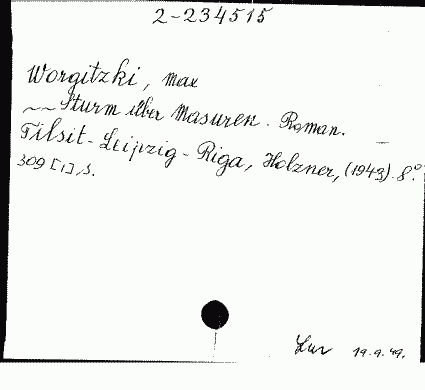 2-234515
Worgitzki, Max
~~ Sturm über Masuren. Roman.
Tilsit-Leipzig-Riga, Holzner, (1943). 8.°
309 [1], S.
19.9.49.